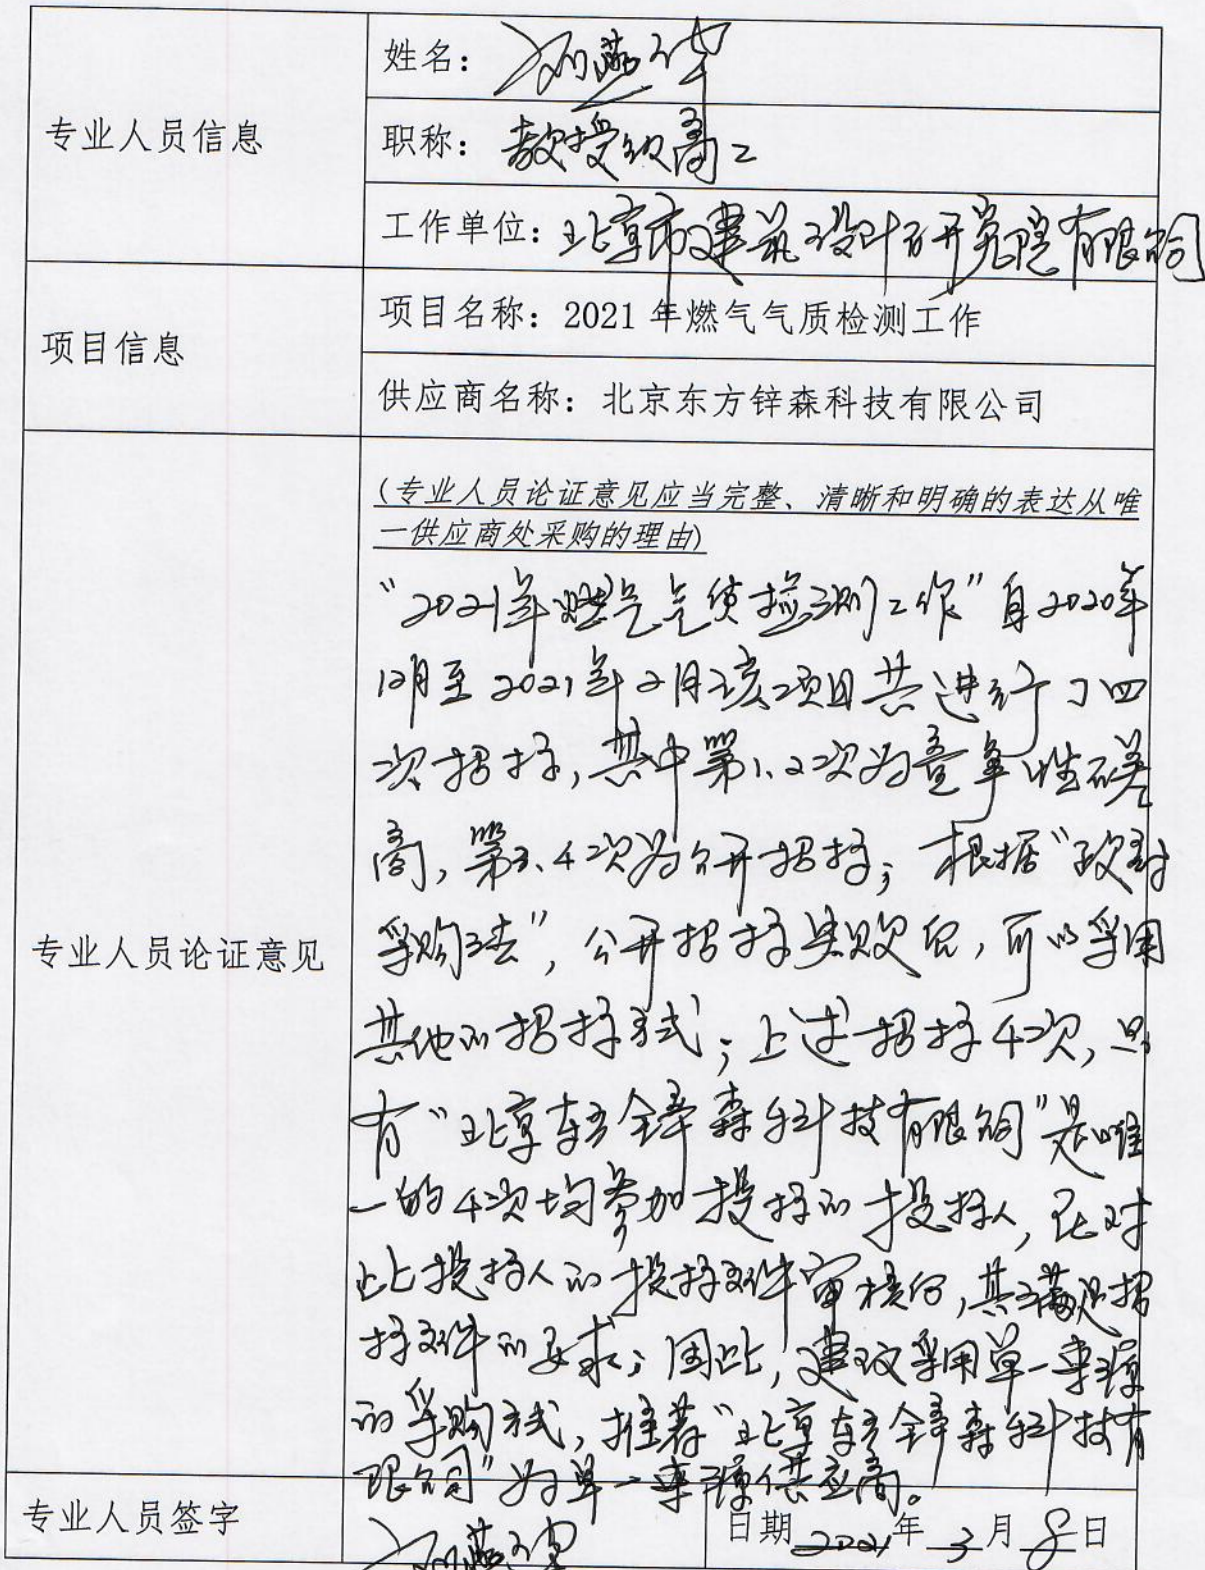 专业人员信息
姓名：
职称：教授级高工
工作单位：北京市建筑设计研究院有限公司
项目信息
项目名称：2021年燃气气质检测工作
供应商名称：北京东方锌森科技有限公司
专业人员论证意见
(专业人员论证意见应当完整、清晰和明确的表达从唯
一供应商处采购的理由)
“2021年燃气气质检测工作”自2020年
12月至2021年2月该项目共进行了四
次招标,其中第1、2次为竞争性磋
商,第3、4次为公开招标;根据“政府
采购法”,公开招标失败后,可以采用
其他的招标方式;上述招标4次,只
有“北京东方锌森科技有限公司”是唯
一的4次均参加投标的投标人,在对
此投标人的投标文件审核后,其满足招
标文件的要求;因此,建议采用单一来源
的采购方式,推荐“北京东方锌森科技有
限公司”为单一来源供应商。
专业人员签字
日期 2021年3月8日